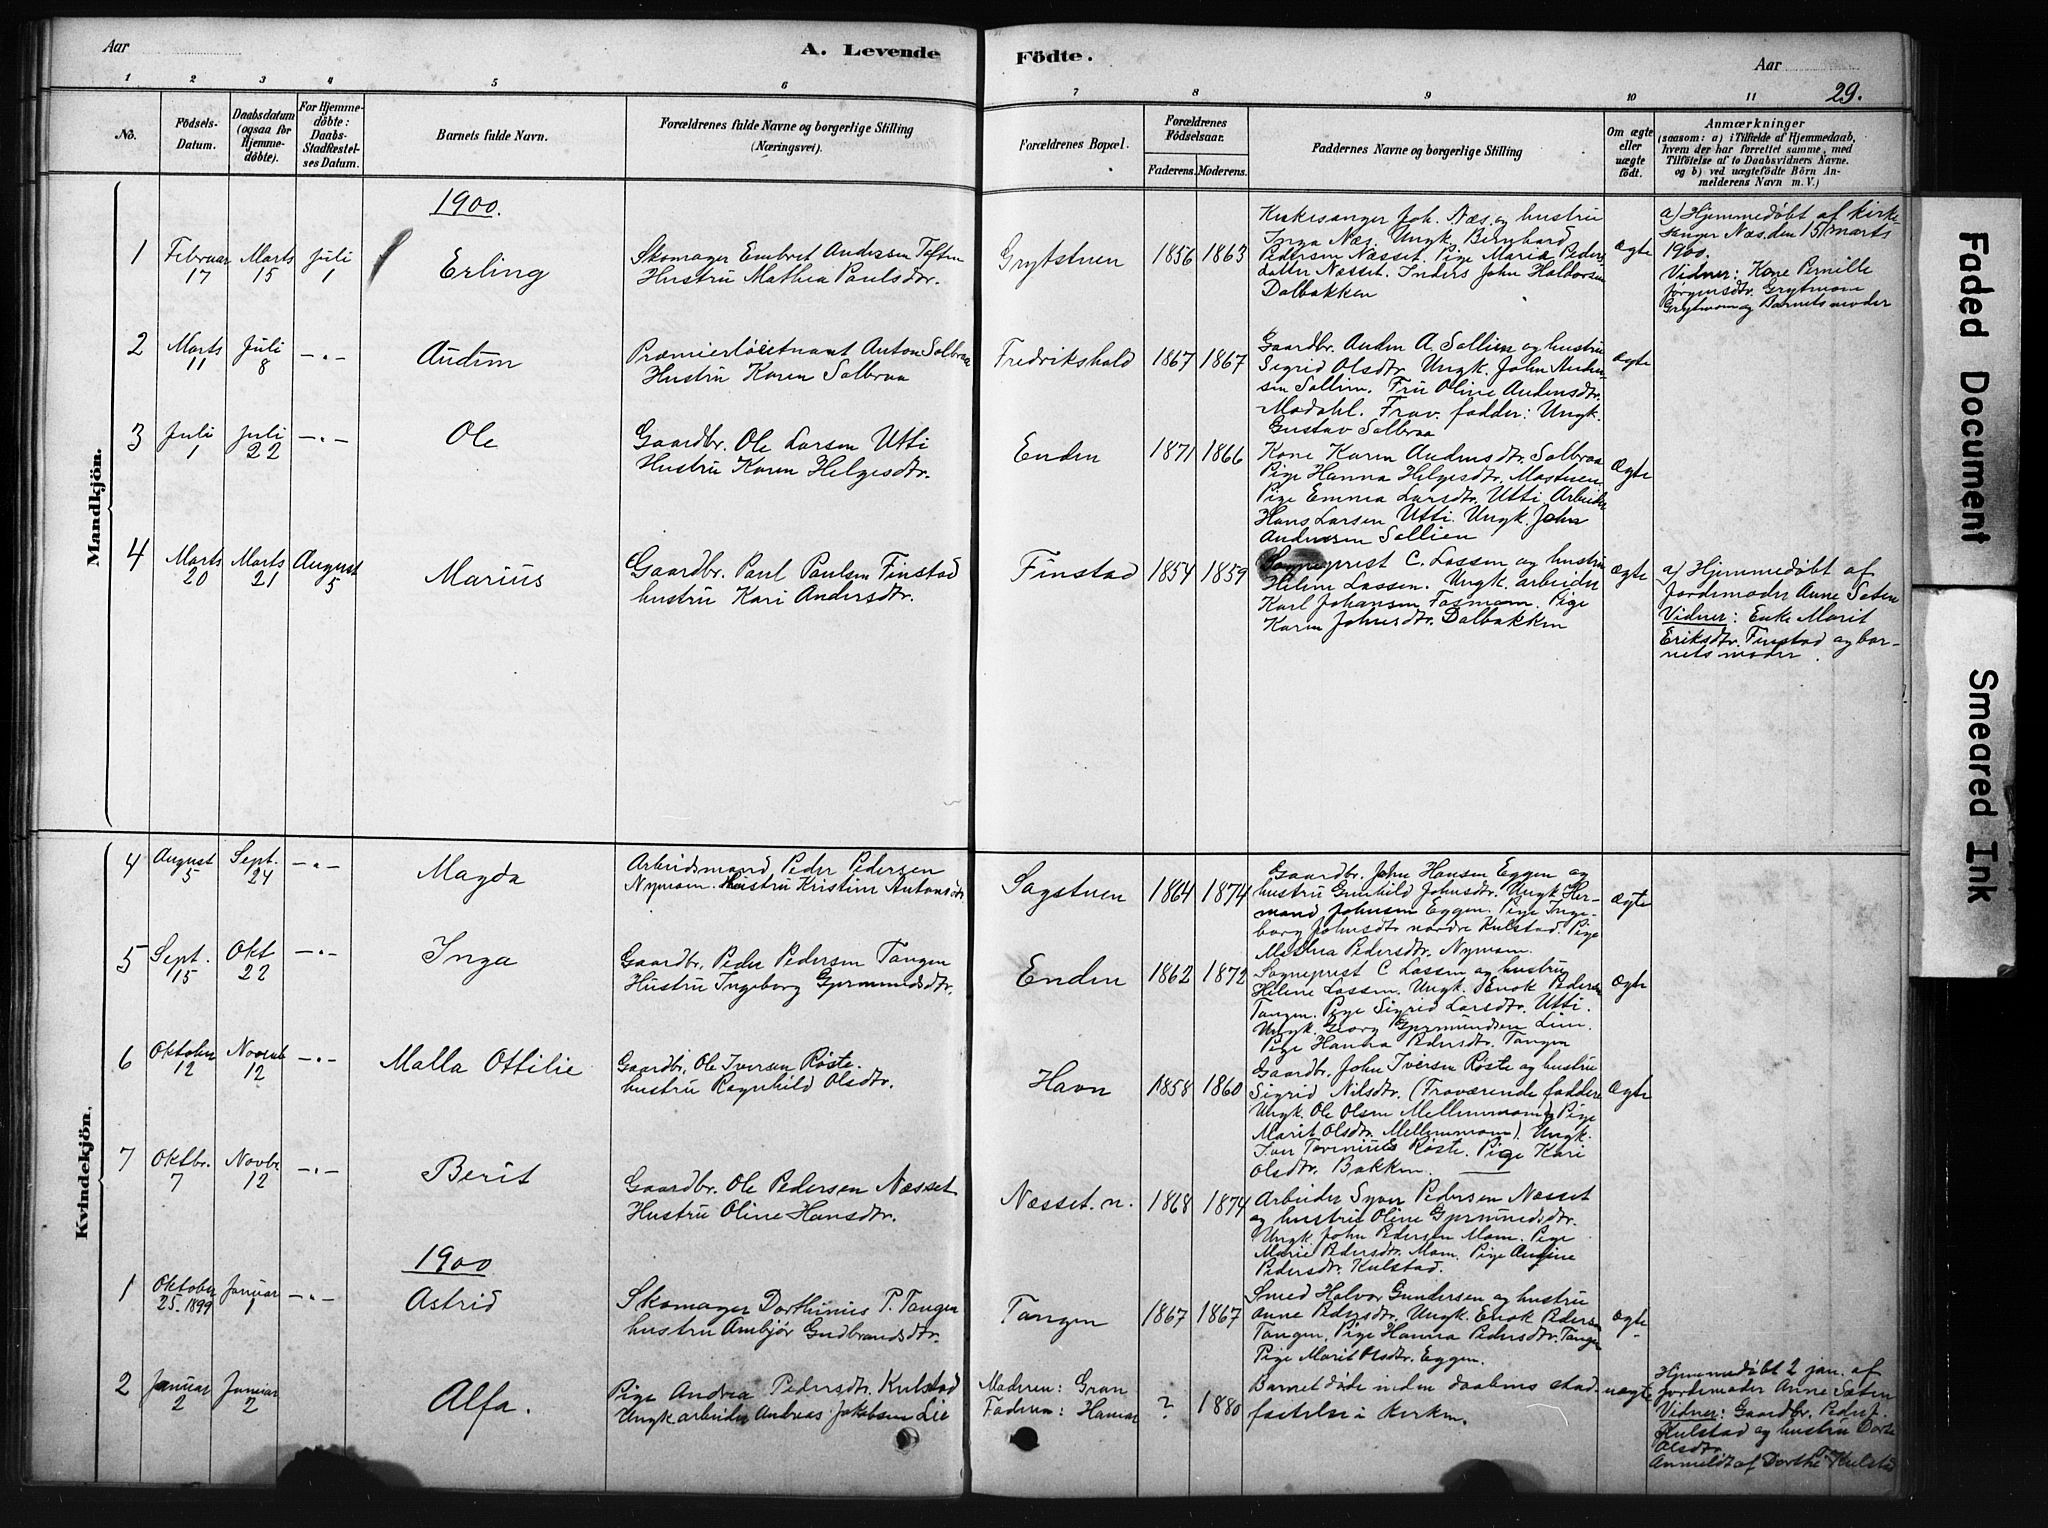 Aar
A. Levende
Födte.
Aar
29.
1 2 3 4 5 6 7 8 9 10 11
No.
Födsels-
Datum.
Daabsdatum
(ogsaa for
Hjemme-
döbte).
For Hjemme-
döbte:
Daabs-
Stadfæstel-
ses Datum.
Barnets fulde Navn.
Forældrenes fulde Navne og borgerlige Stilling
(Næringsvei).
Forældrenes Bopæl.
Forældrenes
Födselsaar.
Faderens. Moderens.
Faddernes Navne og borgerlige Stilling
Om ægte
eller
uægte
födt.
Anmærkninger
(saasom: a) i Tilfælde af Hjemmedaab,
hvem der har forrettet samme, med
Tilföielse af to Daabsvidners Navne.
og b) ved uægtefödte Börn An-
melderens Navn m. V.)
Mandkjön.
1900.
1
Februar
17
Marts
15
Juli
1
Erling
Skomager Embret Andersen Toften
Hustru Mathea Paulsdtr.
Grytstuen
1856 1863
Kirkesanger Joh. Næs og hustru
Inga Næs. Ungk. Bernhard
Pedersen Næsset. Pige Maria Peders
datter Næsset. Inders John Haldorsen
Dalbakken
ægte
a) Hjemmedøbt af kirke
sanger Næs, den 15/marts
1900.
Vidner: Kone Pernille
Jørgensdtr. Grytmom
Grytmom og Barnets moder
2
Marts
11
Juli
8
-"-
Audun
Præmierløitnant Anton Solbraa
Hustru Karen Solbraa
Fredrikshald
1867 1867
Gaardbr. Anders A. Sollien og hustru
Sigrid Olsdtr. Ungk. John Ander-
sen Sollien. Fru Oline Andersdtr.
Modahl. Frav. fadder: Ungk.
Gustav Solbraa
ægte
3
Juli
1
Juli
22
-"-
Ole
Gaardbr. Ole Larsen Utti
Hustru Karen Helgesdtr.
Enden
1871 1866
Kone Karen Andersdtr. Solbraa
Pige Hanna Helgesdtr. Mostuen
Pige Emma Larsdtr. Utti. Arbeider
Hans Larsen Utti. Ungk. John
Andersen Sollien
Ægte
4
Marts
20
Marts
21
August
5
Marius
Gaardbr. Paul Paulsen Finstad
hustru Kari Andersdtr.
Finstad
1854 1859
Sogneprest C. Lassen og hustru
Helene Lassen. Ungk. arbeider
Karl Johansen Fosmom. Pige
Karen Johnsdtr. Dalbakken
ægte
a) Hjemmedøbt af
Jordemoder Anne Sæten
Vidner: Enke Marit
Eriksdtr. Finstad og bar-
nets moder.
Kvindekjön.
4
August
5
Sept.
24
-"-
Magda
Arbeidsmand Peder Pedersen
Nymom. Hustru Kristine Antonsdtr.
Sagstuen
1864 1874
Gaardbr. John Hansen Eggen og
hustru Gunhild Johnsdtr. Ungk. Her-
mand Johnsen Eggen. Pige Inge-
borg Johnsdtr. nordre Kulstad. Pige
Mathea Pedersdtr. Nymom.
ægte
5
Sept.
15
Okt
22
-"-
Inga
Gaardbr. Peder Pedersen Tangen
Hustru Ingeborg Gjermundsdtr.
Enden
1862 1872
Sogneprest C Lassen og hustru
Helene Lassen. Ungk. Enok Pedersen
Tangen. Pige Sigrid Larsdtr. Utti.
Ungk. Georg Gjermundsen Lien.
Pige Hanna Pedersdtr. Tangen
Ægte
6
Oktober
12
Novemb
12
-"-
Malla Ottilie
Gaardbr. Ole Iversen Røste.
hustru Ragnhild Olsdtr.
Havn
1858 1860
Gaardbr. John Iversen Røste og hustru
Sigrid Nilsdtr. (Fraværende faddere
Ungk. Ole Olsen Mellemmom og Pige
Marit Olsdtr. Mellemmom). Ungk.
Iver Torinius Røste. Pige Kari
Olsdtr. Bakken.
Ægte
7
Oktbr.
7
Novbr.
12
-"-
Berit
Gaardbr. Ole Pedersen Næsset
Hustru Oline Hansdtr.
Næsset. n.
1868 1874
Arbeider Syver Pedersen Næsset
og hustru Oline Gjermundsdtr.
Ungk. John Pedersen Mom. Pige
Marie Pedersdtr. Mom. Pige Andine
Pedersdtr. Kulstad.
1900
1
Oktober
25. 1899
Januar
1
-"-
Astrid
Skomager Dorthinius P. Tangen
hustru Ambjør Gudbrandsdtr.
Tangen
1867 1867
Smed Halvor Gundersen og hustru
Anne Pedersdtr. Ungk. Enok Pedersen
Tangen. Pige Hanna Pedersdtr. Tangen
Pige Marit Olsdtr. Eggen.
ægte
2
Januar
2
Januar
2
Alfa.
Pige Andrea Pedersdtr. Kulstad
Ungk arbeider Andreas Jakobsen Lie
Moderen: Gran
Faderen: Hamar
? 1880
Barnet døde inden daabens stad-
fæstelse i Kirken.
uægte
Hjemmedøbt 2 jan. af
Jordemoder Anne Sæten
Vidner: Gaardbr. Peder P.
Kulstad og hustru Dorte
Olsdtr.
Anmeldt af Dorthe Kulstad
Faded Document
Smeared Ink